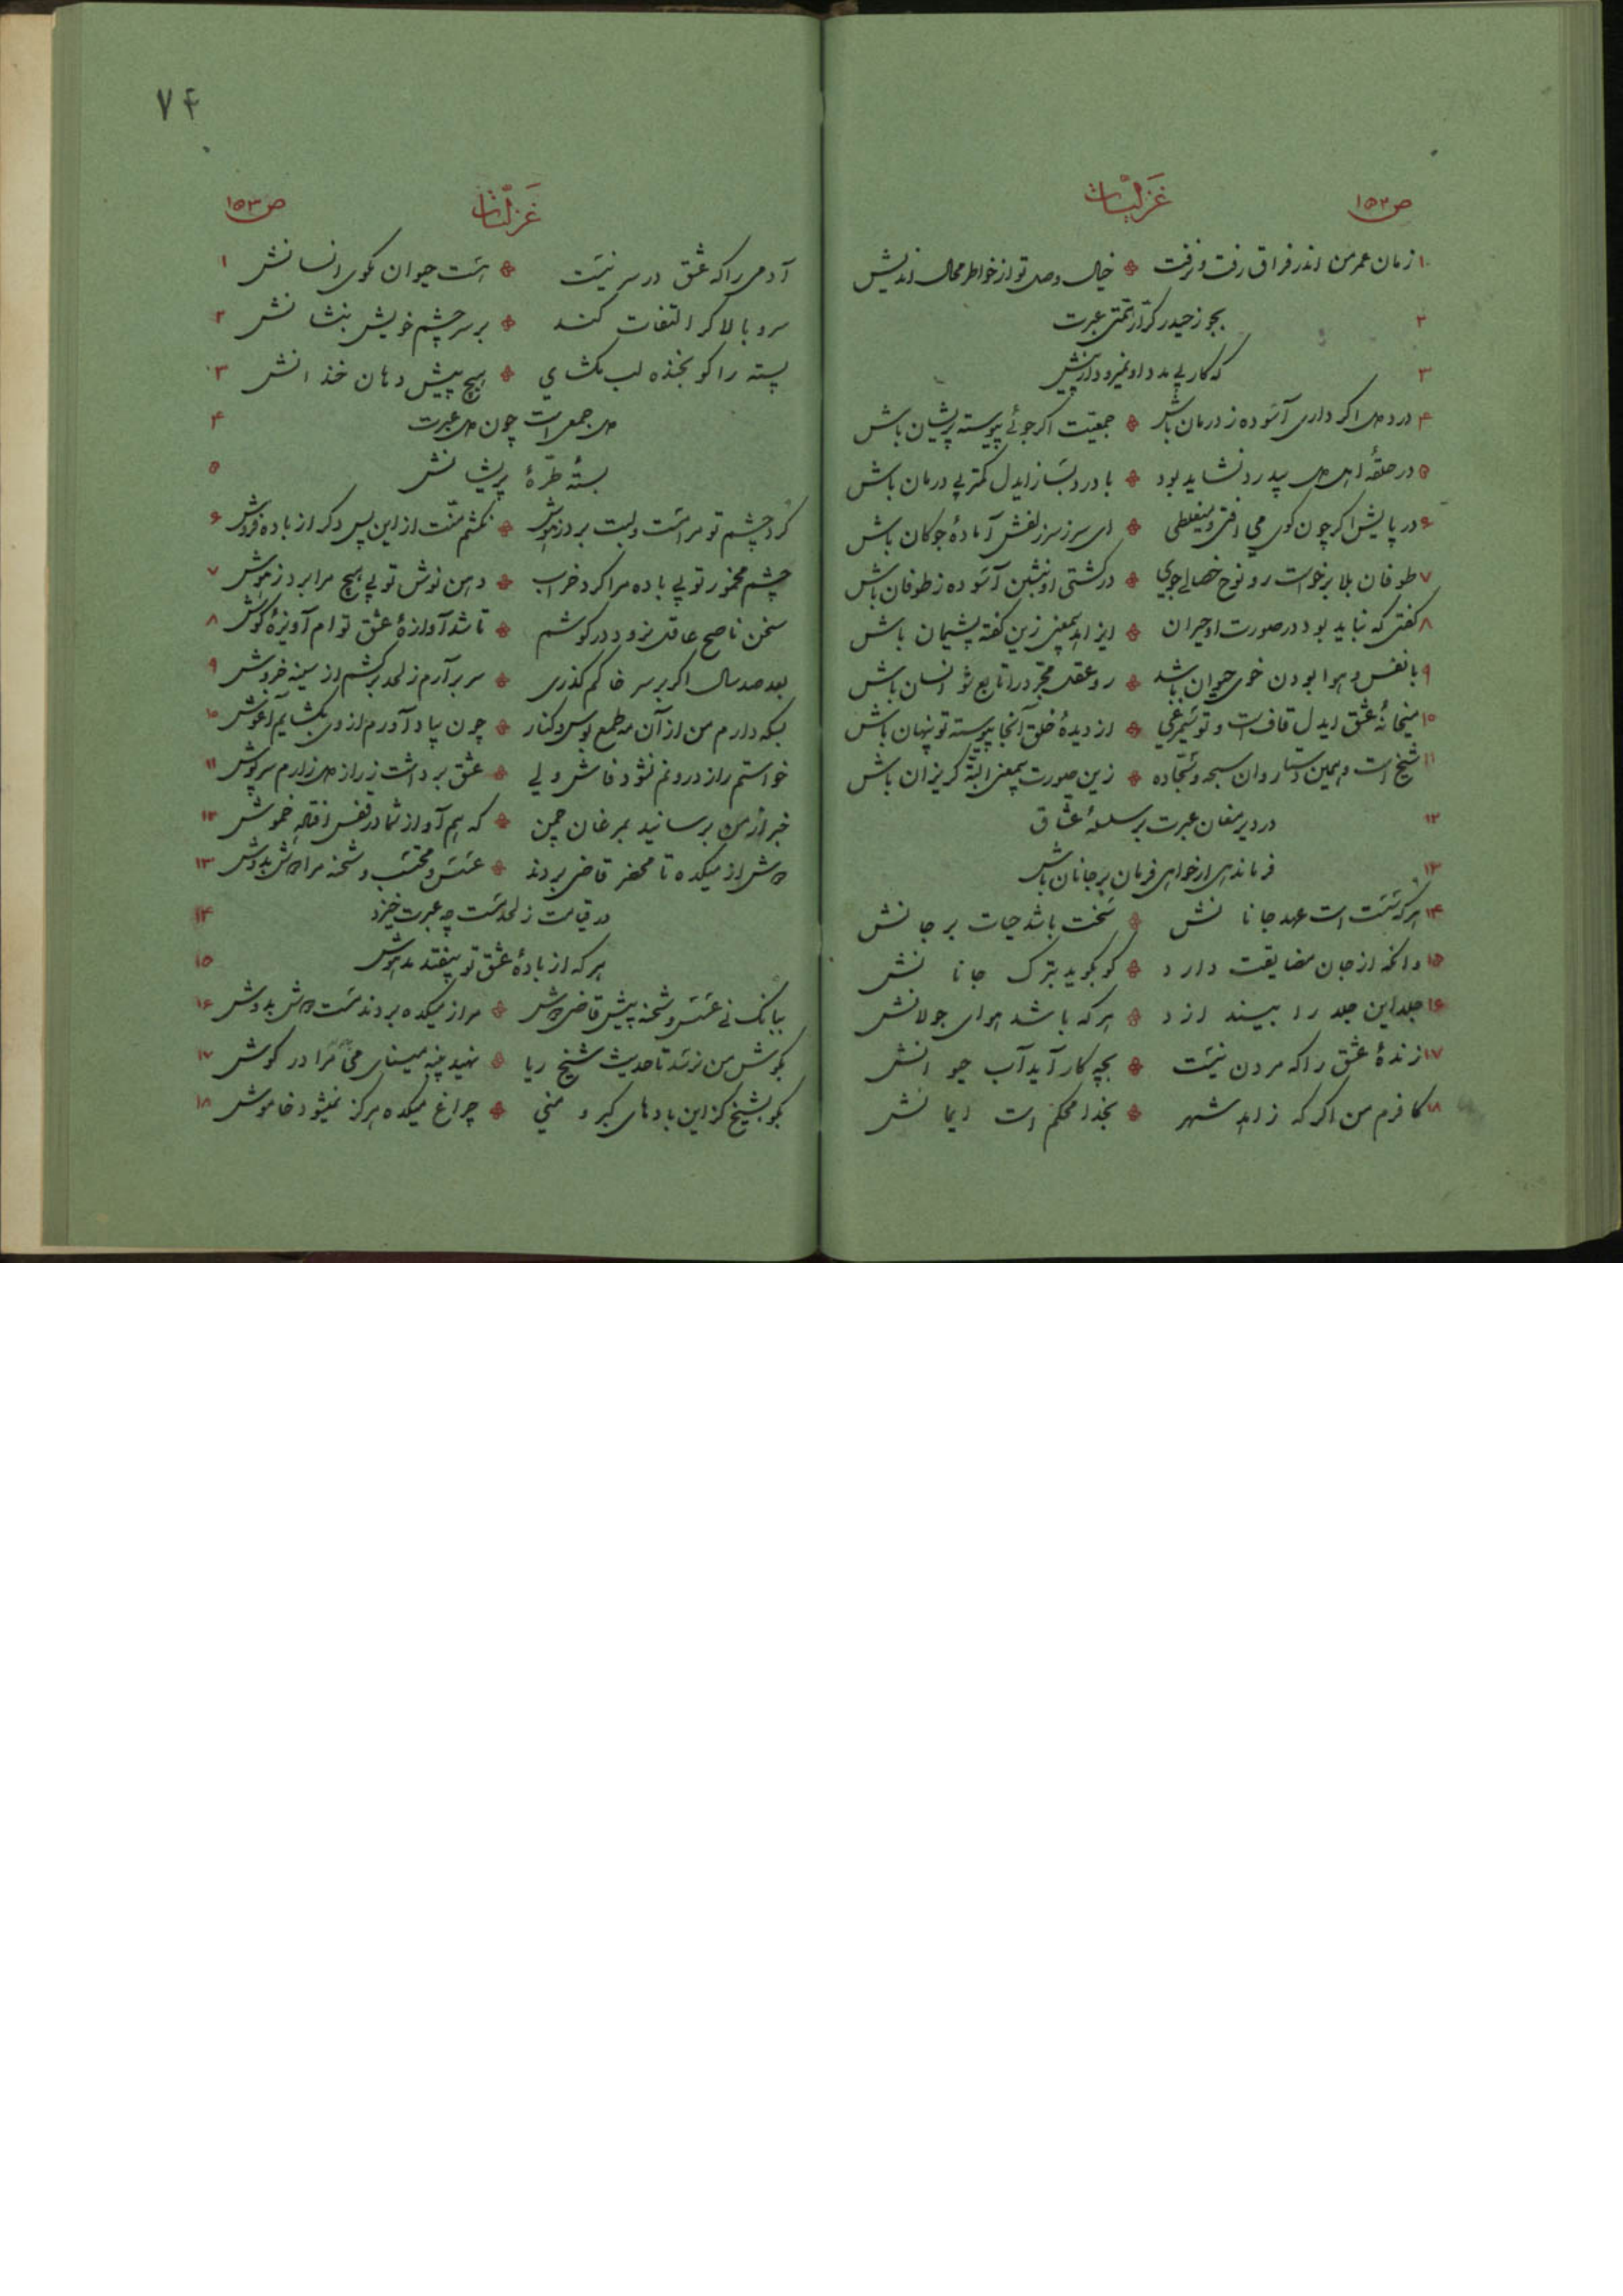 ص۱۵۲
غزلیات
۱ زمان عمر من اندر فراق رفت و نرفت خیال وصل تو از خاطر محال اندیش
۲ بجو ز حیدر کرار همتی عبرت
۳ که کار بی مدد او نمیرود از پیش
۴ درد دل اگر داری آسوده ز درمان باش جمعیت اگر جوئی پیوسته پریشان باش
۵ در حلقهٔ اهل دل بیدرد نشاید بود با درد بساز ایدل کمتر پی درمان باش
۶ در پایش اگر چون گوی می افتی و میغلطی ای سر ز سر زلفش آمادهٔ چوگان باش
۷ طوفان بلا برخواست رو نوح خصالی جوی در کشتی او بنشین آسوده ز طوفان باش
۸ گفتی که نباید بود در صورت او حیران ای زاهد بیمعنی زین گفته پشیمان باش
۹ با نفس و هوا بودن خوی حیوان باشد رو عقل مجرد را تابع شو انسان باش
۱۰ میخانهٔ عشق ایدل قاف است و تو سیمرغی از دیدهٔ خلق آنجا پیوسته تو پنهان باش
۱۱ شیخ است و همین دستار وان سبحه و سجاده زین صورت بیمعنی البته گریزان باش
۱۲ در دیر مغان عبرت بر سلسلهٔ عشاق
۱۳ فرماندهی ار خواهی فرمان بر جانان باش
۱۴ هر که سست است عهد جانانش سخت باشد حیات بر جانش
۱۵ وانکه از جان مضایقت دارد گو بگوید بترک جانانش
۱۶ جلد این جلد را ببیندازد هر که باشد هوای جولانش
۱۷ زندهٔ عشق را که مردن نیست بچه کار آید آب حیوانش
۱۸ کافرم من اگر که زاهد شهر بخدا محکم است ایمانش
۷۴
غزلیات
ص۱۵۳
آدمی را که عشق در سر نیست هست حیوان مگوی انسانش ۱
سرو بالا گر التفات کند بر سر چشم خویش بنشانش ۲
پسته را گو بخنده لب مگشای هیچ پیش دهان خندانش ۳
دل جمعی است چون دل عبرت ۴
بستهٔ طرهٔ پریشانش ۵
کرد چشم تو مرا مست و لبت برد ز هوش نکشم منت از این پس دگر از باده فروش ۶
چشم مخمور تو بی باده مرا کرد خراب دهن نوش تو بی هیچ مرا برد ز هوش ۷
سخن ناصح عاقل نرود در گوشم تا شد آوازهٔ عشق تو ام آویزهٔ گوش ۸
بعد صد سال اگر بر سر خاکم گذری سر برآرم ز لحد برکشم از سینه خروش ۹
بسکه دارم من از آن مه طمع بوس و کنار چون بیاد آورم از وی بگشایم آغوش ۱۰
خواستم راز درونم نشود فاش ولی عشق برداشت ز راز دل زارم سرپوش ۱۱
خبر از من برسانید بمرغان چمن که هم آواز شما در قفس افتاده خموش ۱۲
دوش از میکده تا محضر قاضی بردند عسس و محتسب و شحنه مرا دوش بدوش ۱۳
در قیامت ز لحد مست چه عبرت خیزد ۱۴
هر که از بادهٔ عشق تو بیفتد مدهوش ۱۵
ببانگ نی عسس و شحنه پیش قاضی دوش مرا ز میکده بردند مست دوش بدوش ۱۶
بگوش من نرسد تا حدیث شیخ ریا نهید پنبه مینای می مرا در گوش ۱۷
بگو بشیخ کز این بادهای کبر و منی چراغ میکده هرگز نمیشود خاموش ۱۸